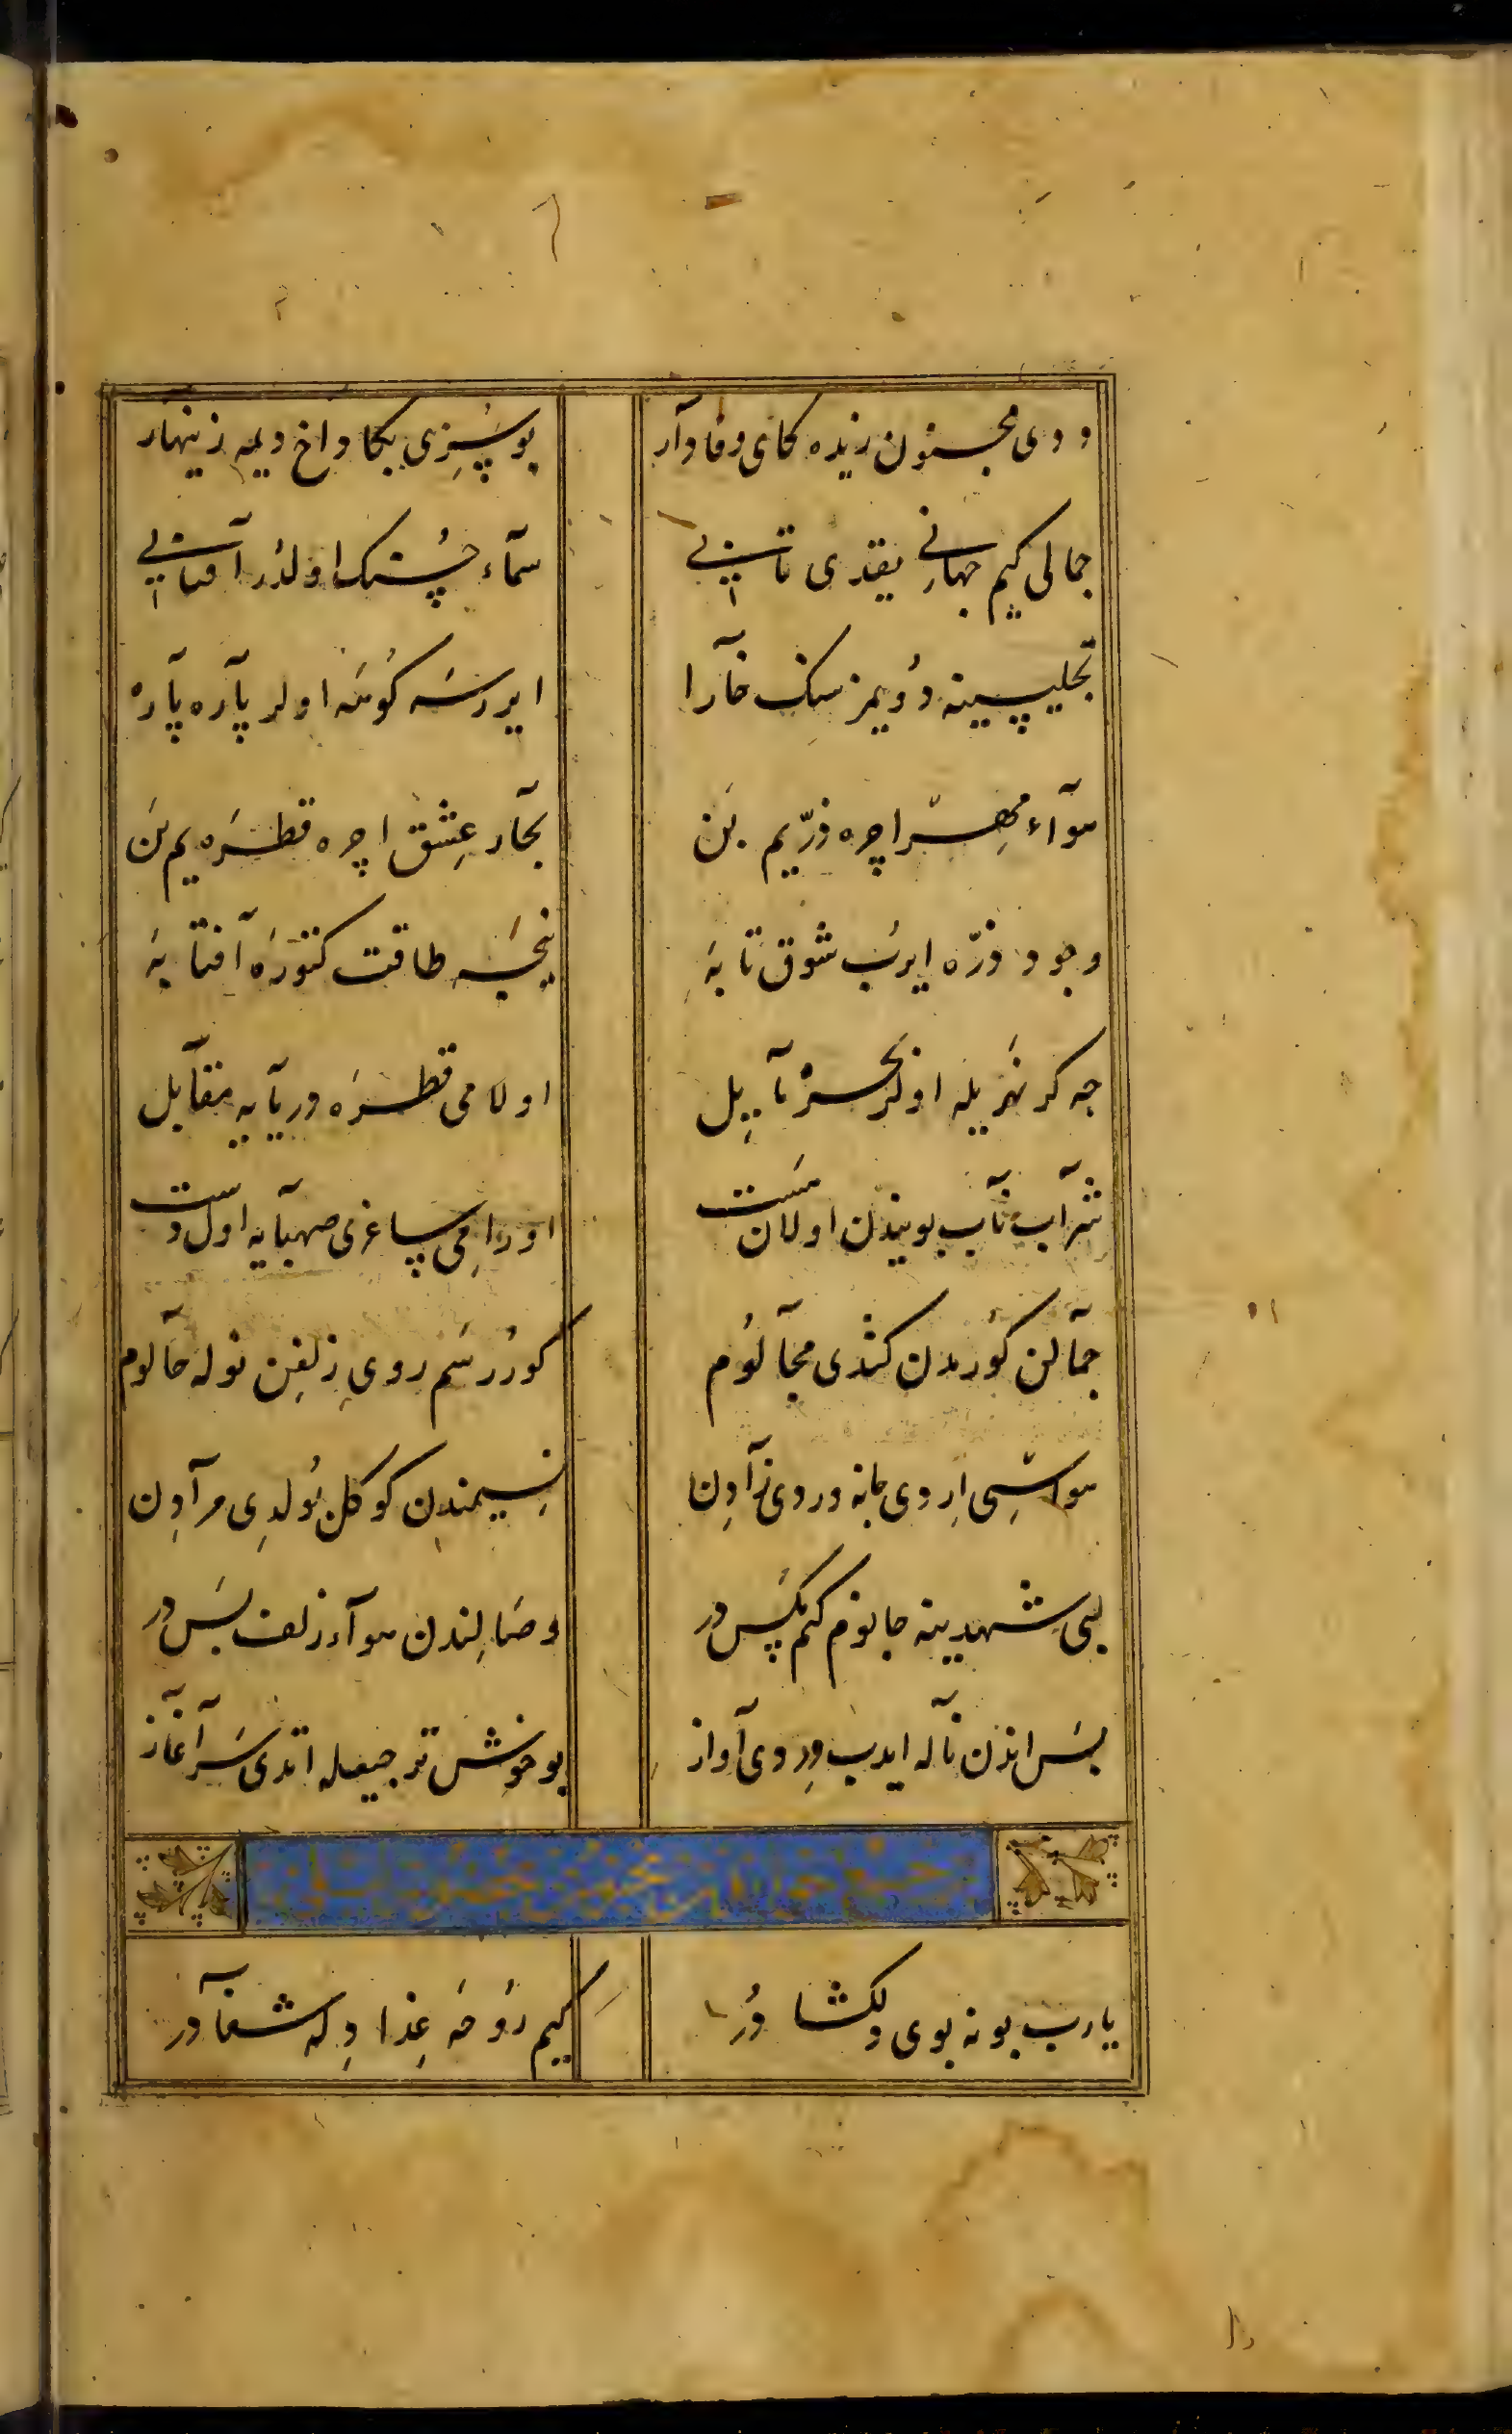 ددی مجنون زیده کای وفادار بو سزی بکا داخ دیمه زینهار
جمالی کیم جهانی یقدی تابی سمآء حسنک اولدر آفتابی
تجلیسینه دویمز سنک خارا ایررسه کوهه اولر پاره پاره
هوآء مهر اچره ذرّه یم بن بحار عشق اچره قطره یم بن
وجود ذرّه ایرب شوق تابه نیجه طاقت کتوره آفتابه
چه کر نهر یله اولر بحر نایل اولامی قطره دریایه مقابل
شراب ناب بویندن اولان مست اورامی ساغری صهبایه اول دست
جمالن کورمدن کتدی مجالوم کوررسم روی زلفن نوله حالوم
هواسی اردی جانه وردی زادن نسیمندن کوکل بولدی مرادن
لبی شهدینه جانوم کم مکس در وصالندن هوآء زلف بس در
بس اندن ناله ایدب وردی آواز بو خوش ترجیعله اتدی سرآغاز
یارب بو نه بوی دلکشا در کیم روحه غذا دله شفا در